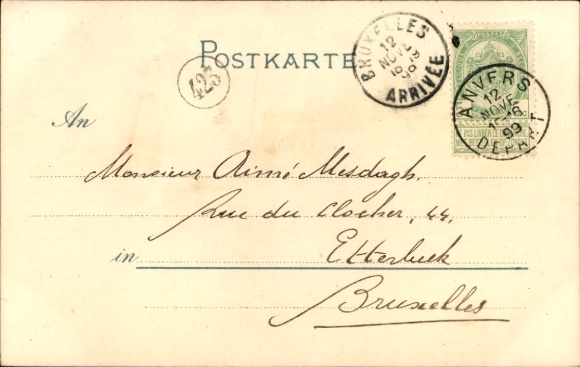 POSTKARTE
BRUXELLES
12
NOVE
99
ARRIVÉE
ANVERS
12
NOVE
99
DEPART
423
An
Monsieur Aimé Mesdagh.
Rue du Clocher, 44.
in Etterbeek
Bruxelles